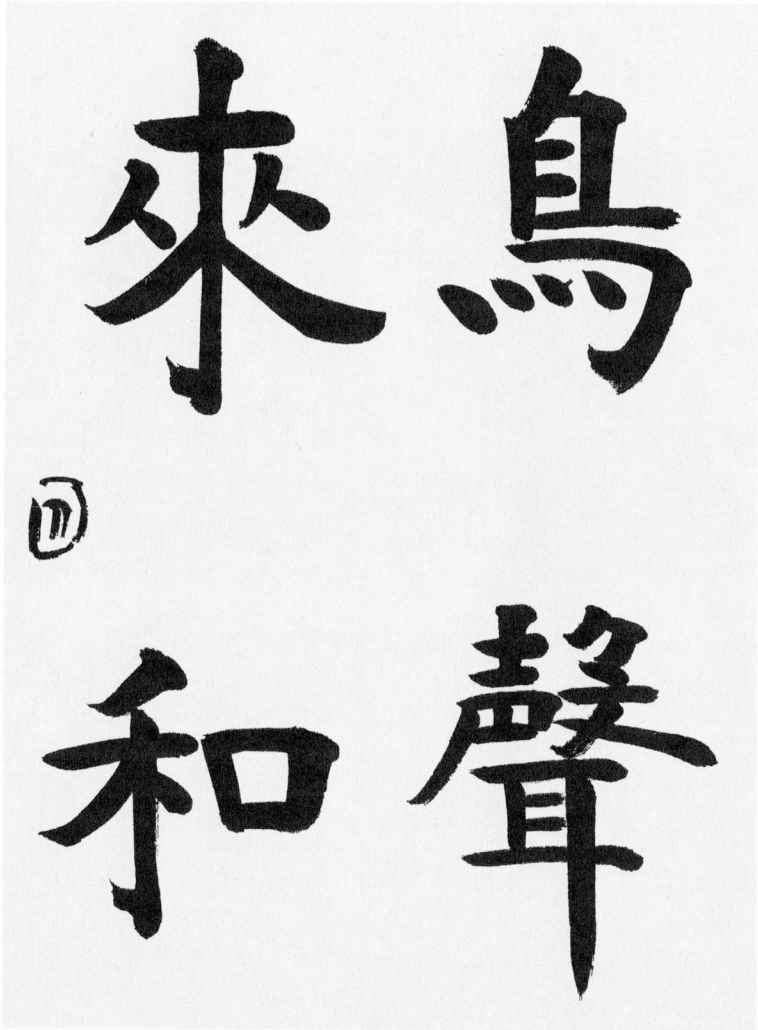 鳥聲
來和